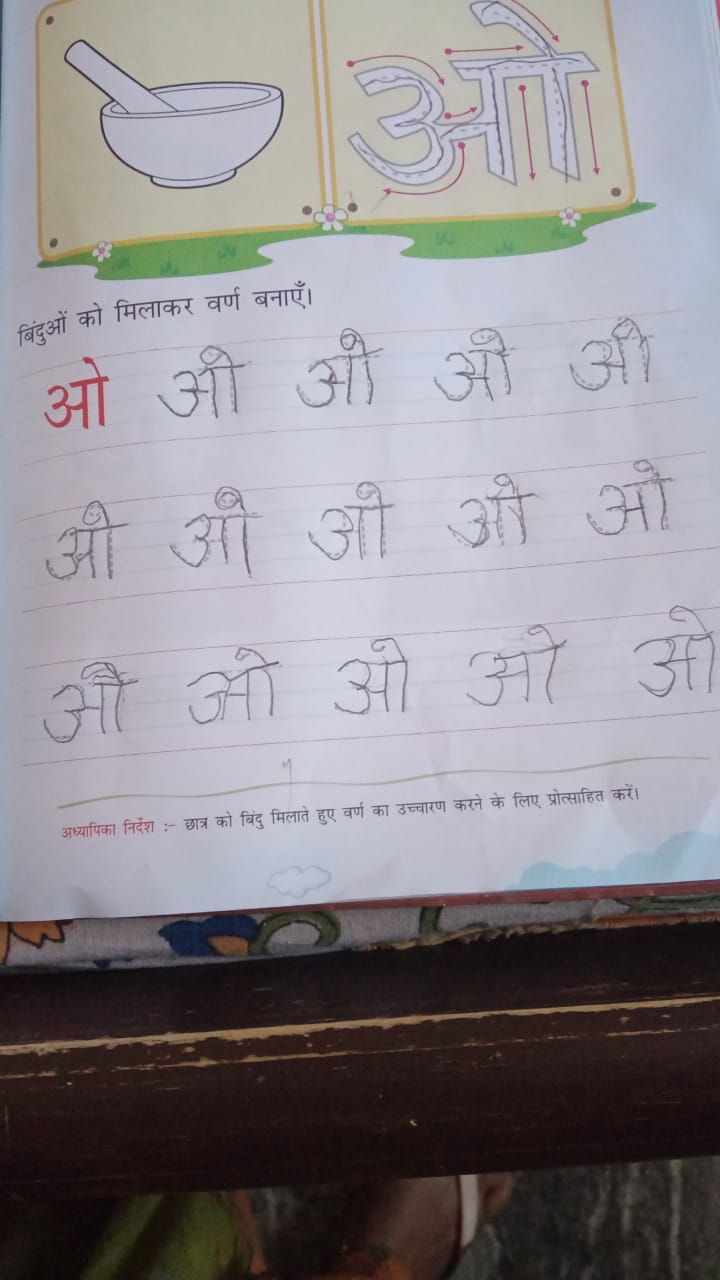 ओ
बिंदुओं को मिलाकर वर्ण बनाएँ।
ओ ओ ओ ओ ओ
ओ ओ ओ ओ ओ
ओ ओ ओ ओ ओ
अध्यापिका निर्देश :- छात्र को बिंदु मिलाते हुए वर्ण का उच्चारण करने के लिए प्रोत्साहित करें।